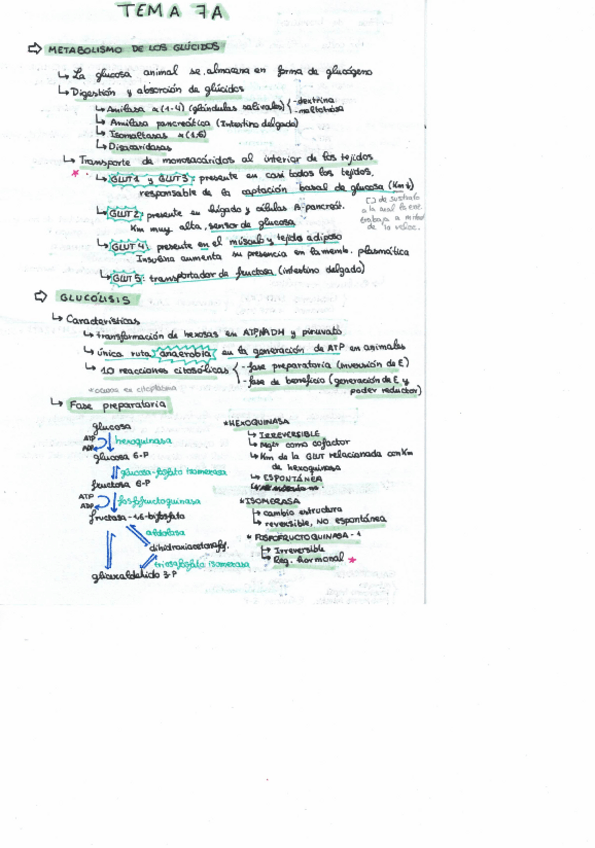 TEMA 7A
⇨ METABOLISMO DE LOS GLÚCIDOS
↳ La glucosa animal se almacena en forma de glucógeno
↳ Digestión y absorción de glúcidos
↳ Amilasa α(1-4) (glándulas salivales) { -dextrina
-maltotriosa
↳ Amilasa pancreática (Intestino delgado)
↳ Isomaltasas α(1,6)
↳ Disacaridasas
↳ Transporte de monosacáridos al interior de los tejidos
* ↳ GLUT1 y GLUT3: presente en casi todos los tejidos,
responsable de la captación basal de glucosa (Km↓)
[ ] de sustrato
a la cual la enz.
trabaja a mitad
de la veloc.
↳ GLUT2: presente en hígado y células β-pancreát.
Km muy alta, sensor de glucosa
↳ GLUT4: presente en el músculo y tejido adiposo
Insulina aumenta su presencia en la memb. plasmática
↳ GLUT5: transportador de fructosa (intestino delgado)
⇨ GLUCÓLISIS
↳ Características
↳ transformación de hexosas en ATP, NADH y piruvato
↳ única ruta anaerobia en la generación de ATP en animales
↳ 10 reacciones citosólicas { -fase preparatoria (inversión de E)
-fase de beneficio (generación de E y
poder reductor)
+ ocurre en citoplasma
↳ Fase preparatoria
glucosa
ATP
ADP
hexoquinasa
glucosa 6-P
glucosa-fosfato isomerasa
fructosa 6-P
ATP
ADP
fosfofructoquinasa
fructosa-1,6-bifosfato
aldolasa
dihidroxiacetonafosf.
triosafosfato isomerasa
gliceraldehído 3-P
*HEXOQUINASA
↳ IRREVERSIBLE
↳ Mg2+ como cofactor
↳ Km de la GLUT relacionada con Km
de hexoquinasa
↳ ESPONTÁNEA
*ISOMERASA
↳ cambia estructura
↳ reversible, NO espontánea
* FOSFOFRUCTOQUINASA-1
↳ Irreversible
↳ Reg. hormonal *